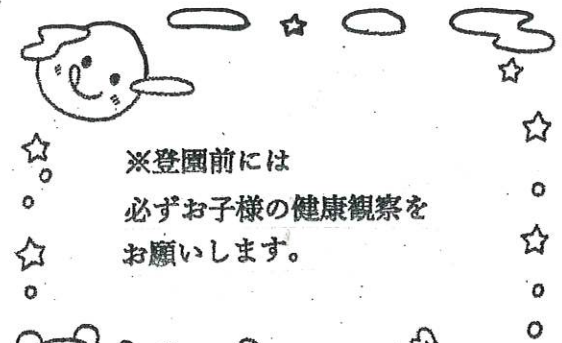 ※登園前には
必ずお子様の健康観察を
お願いします。